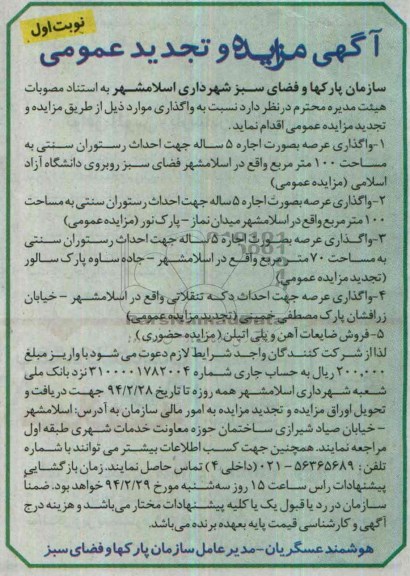 نوبت اول
آگهی مزایده و تجدید عمومی
سازمان پارکها و فضای سبز شهرداری اسلامشهر به استناد مصوبات
هیئت مدیره محترم در نظر دارد نسبت به واگذاری موارد ذیل از طریق مزایده و
تجدید مزایده عمومی اقدام نماید.
۱-واگذاری عرصه بصورت اجاره ۵ ساله جهت احداث رستوران سنتی به
مساحت ۱۰۰ متر مربع واقع در اسلامشهر فضای سبز روبروی دانشگاه آزاد
اسلامی (مزایده عمومی)
۲-واگذاری عرصه بصورت اجاره ۵ ساله جهت احداث رستوران سنتی به مساحت
۱۰۰ متر مربع واقع در اسلامشهر میدان نماز - پارک نور (مزایده عمومی)
۳-واگذاری عرصه بصورت اجاره ۵ ساله جهت احداث رستوران سنتی
به مساحت ۷۰ متر مربع واقع در اسلامشهر - جاده ساوه پارک سالور
(تجدید مزایده عمومی)
۴-واگذاری عرصه جهت احداث دکه تنقلاتی واقع در اسلامشهر - خیابان
زرافشان پارک مصطفی خمینی (تجدید مزایده عمومی)
۵- فروش ضایعات آهن و پلی اتیلن (مزایده حضوری)
لذا از شرکت کنندگان واجد شرایط لازم دعوت می شود با واریز مبلغ
۲۰۰,۰۰۰ ریال به حساب جاری شماره ۳۱۰۰۰۰۱۷۸۲۰۰۴ نزد بانک ملی
شعبه شهرداری اسلامشهر همه روزه تا تاریخ ۹۴/۲/۲۸ جهت دریافت و
تحویل اوراق مزایده و تجدید مزایده به امور مالی سازمان به آدرس: اسلامشهر
- خیابان صیاد شیرازی ساختمان حوزه معاونت خدمات شهری طبقه اول
مراجعه نمایند. همچنین جهت کسب اطلاعات بیشتر می توانند با شماره
تلفن: ۵۶۳۶۵۶۸۹ - ۰۲۱ (داخلی ۴) تماس حاصل نمایند. زمان بازگشایی
پیشنهادات راس ساعت ۱۵ روز سه شنبه مورخ ۹۴/۲/۲۹ خواهد بود. ضمناً
سازمان در رد یا قبول یک یا کلیه پیشنهادات مختار می باشد و هزینه درج
آگهی و کارشناسی قیمت پایه بعهده برنده می باشد.
هوشمند عسگریان - مدیر عامل سازمان پارکها و فضای سبز